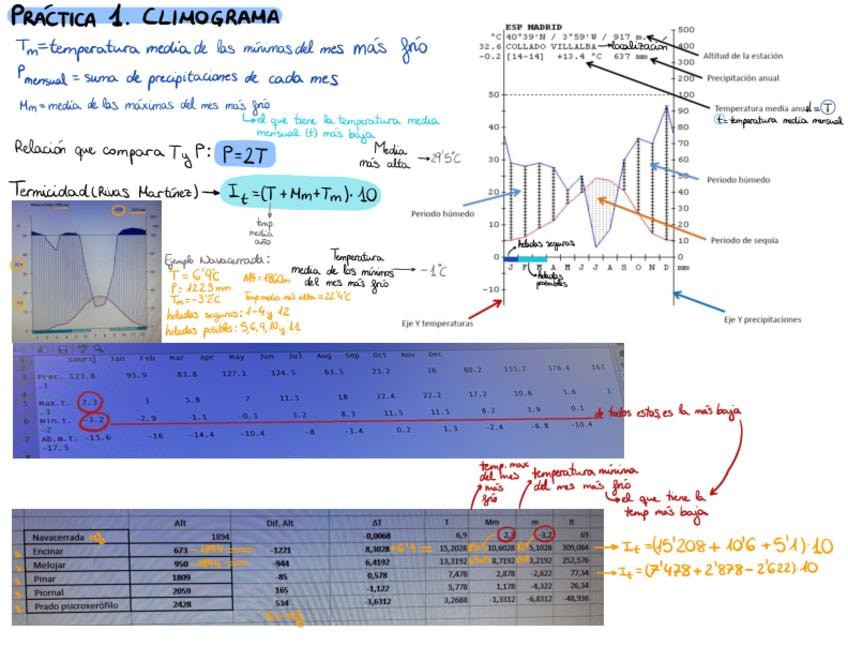 PRÁCTICA 1. CLIMOGRAMA
Tm=temperatura media de las mínimas del mes más frío
Pmensual = suma de precipitaciones de cada mes
Mm = media de las máximas del mes más frío
el que tiene la temperatura media
mensual (t) más baja
Relación que compara T y P: P=2T
Media
más alta → 29'5°C
Termicidad (Rivas Martínez) → It = (T + Mm + Tm) · 10
temp.
media
año
Ejemplo Navacerrada:
T = 6'9°C
P = 1223mm
Tm = -3'2°C
Alt = 1860m
Temp media más alta = 22'4°C
heladas seguras: 1-4 y 12
heladas posibles: 5,6,9,10 y 11
Temperatura
media de las mínimas
del mes más
frío
→ -1°C
ESP MADRID
°C 40°39'N / 3°59'W / 917 m.
32.6 COLLADO VILLALBA → localización
-0.2 [14-14] +13.4 °C 637 mm
500
400
300
200
100
90
80
70
60
50
40
30
20
10
0
50
40
30
20
10
0
-10
J F M A M J J A S O N D mm
Altitud de la estación
Precipitación anual
Temperatura media anual = T
t = temperatura media mensual
Periodo húmedo
Periodo húmedo
Periodo de sequía
heladas seguras
heladas probables
Eje Y temperaturas
Eje Y precipitaciones
Jan Feb Mar Apr May Jun Jul Aug Sep Oct Nov Dec
Prec. 123.8 95.9 83.8 127.1 124.5 63.5 23.2 26 60.2 155.7 176.4 161
.1
Max.t. 2.3 3 5.8 7 11.5 18 22.4 22.2 17.2 10.6 5.6 1
.3
Min.t. -3.2 -2.9 -1.1 -0.3 3.2 8.3 11.5 11.5 8.2 3.9 0.1
-2
Ab.m.t. -15.6 -16 -14.4 -10.4 -8 -3.4 0.2 1.3 -2.4 -6.8 -10.4
-17.5
de todos estos, es la más baja
temp. max
del mes
más
frío
temperatura mínima
del mes más frío
el que tiene la
temp más baja
Alt Dif. Alt ΔT T Mm m It
Navacerrada 1894 -0,0068 6,9 2,3 -3,2 69
Encinar 673 -1894 = -1221 8,3028 +6'9 = 15,2028 10,6028 5,1028 309,084
Melojar 950 -1894 = -944 6,4192 13,3192 8,7192 3,2192 252,576
Pinar 1809 -85 0,578 7,478 2,878 -2,622 77,34
Piornal 2059 165 -1,122 5,778 1,178 -4,322 26,34
Prado psicroxerófilo 2428 534 -3,6312 3,2688 -1,3312 -6,8312 -48,936
It = (15'208 + 10'6 + 5'1) · 10
It = (7'478 + 2'878 - 2'622) 10